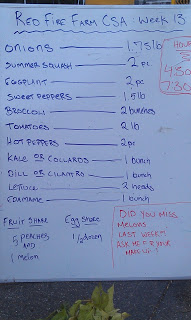 RED FIRE FARM CSA WEEK 13
ONIONS 1.75 lb
SUMMER SQUASH 2 pc
EGGPLANT 2 pc
SWEET PEPPERS 1.5 lb
BROCCOLI 2 bunches
TOMATOES 2 lb
HOT PEPPERS 2 pc
KALE OR COLLARDS 1 bunch
DILL OR CILANTRO 1 bunch
LETTUCE 2 heads
EDAMAME 1 bunch
HOUR
4:30
7:30
FRUIT SHARE
5 PEACHES
AND
1 melon
Egg Share
1/2 dozen
DID YOU MISS
MELONS
LAST WEEK
ASK FOR YOUR
MAKE UP!